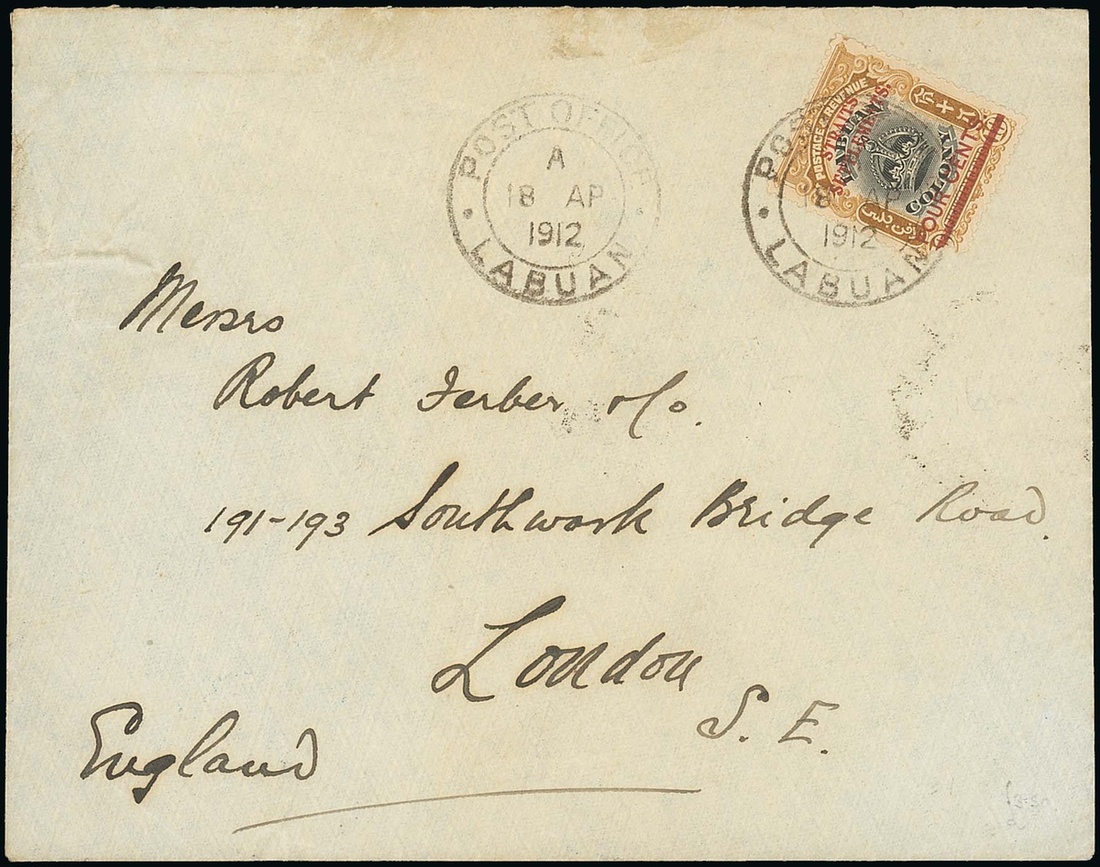 POST OFFICE
A
18 AP
1912
LABUAN
POS
18 AP
1912
LABUAN
POSTAGE & REVENUE
LABUAN
COLONY
STRAITS
SETTLEMENTS.
FOUR CENTS
Messrs
Robert Ferber & Co.
191-193 Southwark Bridge Road.
London
S. E.
England